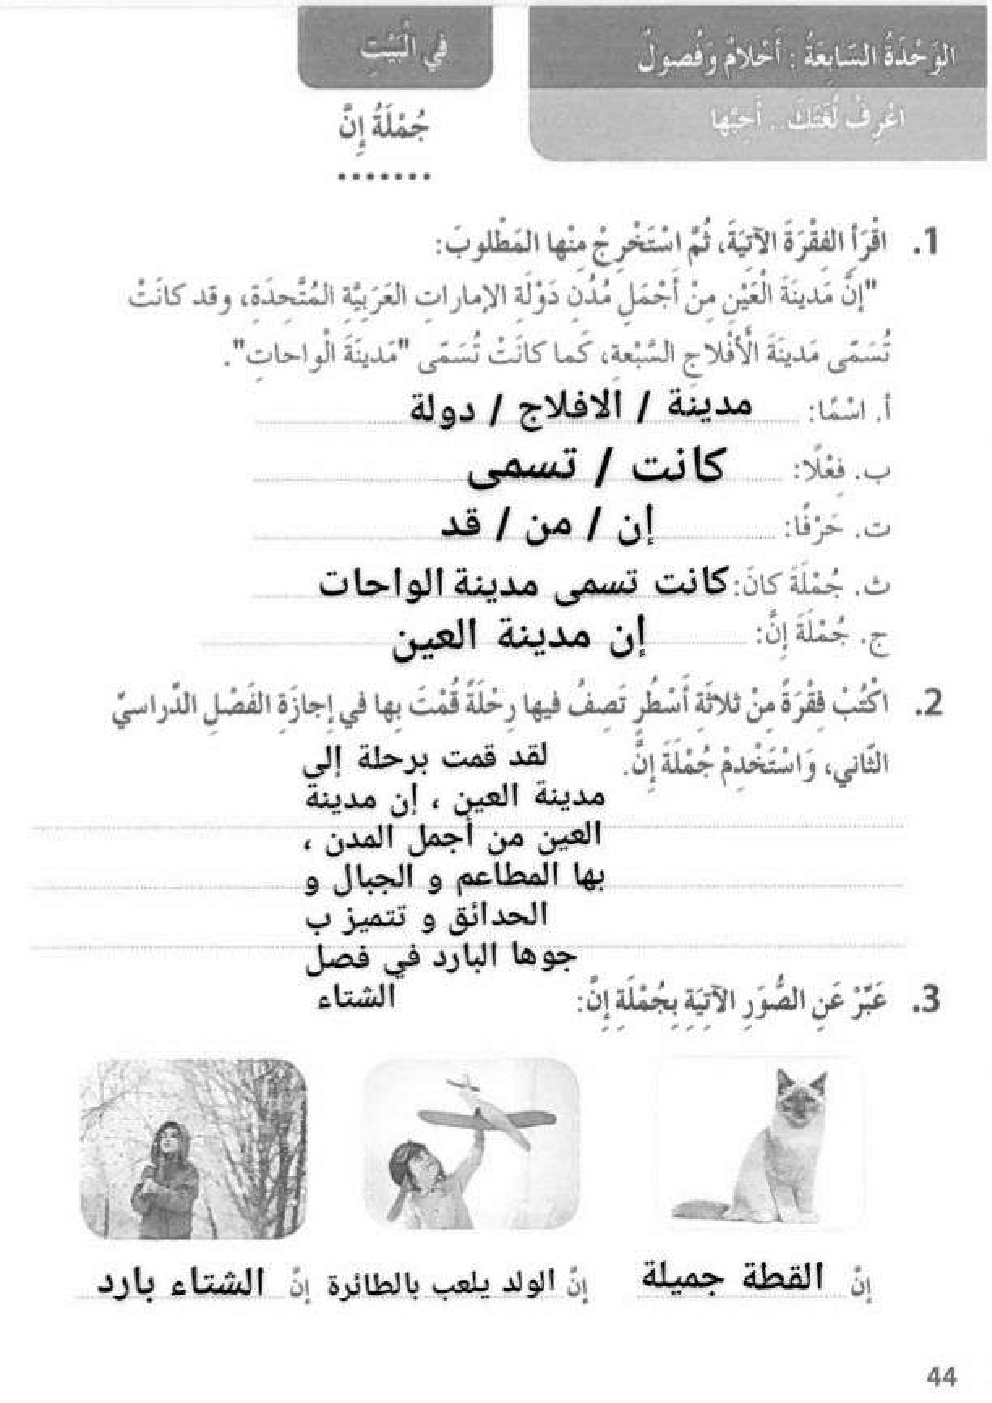 الوَحْدَةُ السّابِعَةُ : أَحْلامٌ وَفُصولٌ
في الْبَيْتِ
اعْرِفْ لُغَتَكَ.. أَحِبَّها
جُمْلَةُ إِنَّ
1. اقْرَأ الفِقْرَةَ الآتِيَةَ، ثُمَّ اسْتَخْرِجْ مِنْها المَطْلوبَ:
"إِنَّ مَدينَةَ الْعَيْنِ مِنْ أَجْمَلِ مُدُنِ دَوْلَةِ الإماراتِ العَرَبِيَّةِ المُتَّحِدَةِ، وقد كانَتْ
تُسَمّى مَدينَةَ الْأَفْلاجِ السَّبْعَةِ، كَما كانَتْ تُسَمّى "مَدينَةَ الْواحاتِ".
أ. اسْمًا: مدينة / الافلاج / دولة
ب. فِعْلًا: كانت / تسمى
ت. حَرْفًا: إن / من / قد
ث. جُمْلَةَ كانَ: كانت تسمى مدينة الواحات
ج. جُمْلَةَ إِنَّ: إن مدينة العين
2. اكْتُبْ فِقْرَةً مِنْ ثلاثَةِ أَسْطُرٍ تَصِفُ فيها رِحْلَةً قُمْتَ بِها في إجازَةِ الفَصْلِ الدِّراسيِّ
الثّاني، وَاسْتَخْدِمْ جُمْلَةَ إِنَّ.
لقد قمت برحلة إلى
مدينة العين ، إن مدينة
العين من أجمل المدن ،
بها المطاعم و الجبال و
الحدائق و تتميز ب
جوها البارد في فصل
الشتاء
3. عَبِّرْ عَنِ الصُّوَرِ الآتِيَةِ بِجُمْلَةِ إِنَّ:
إنّ القطة جميلة
إنّ الولد يلعب بالطائرة
إنّ الشتاء بارد
44